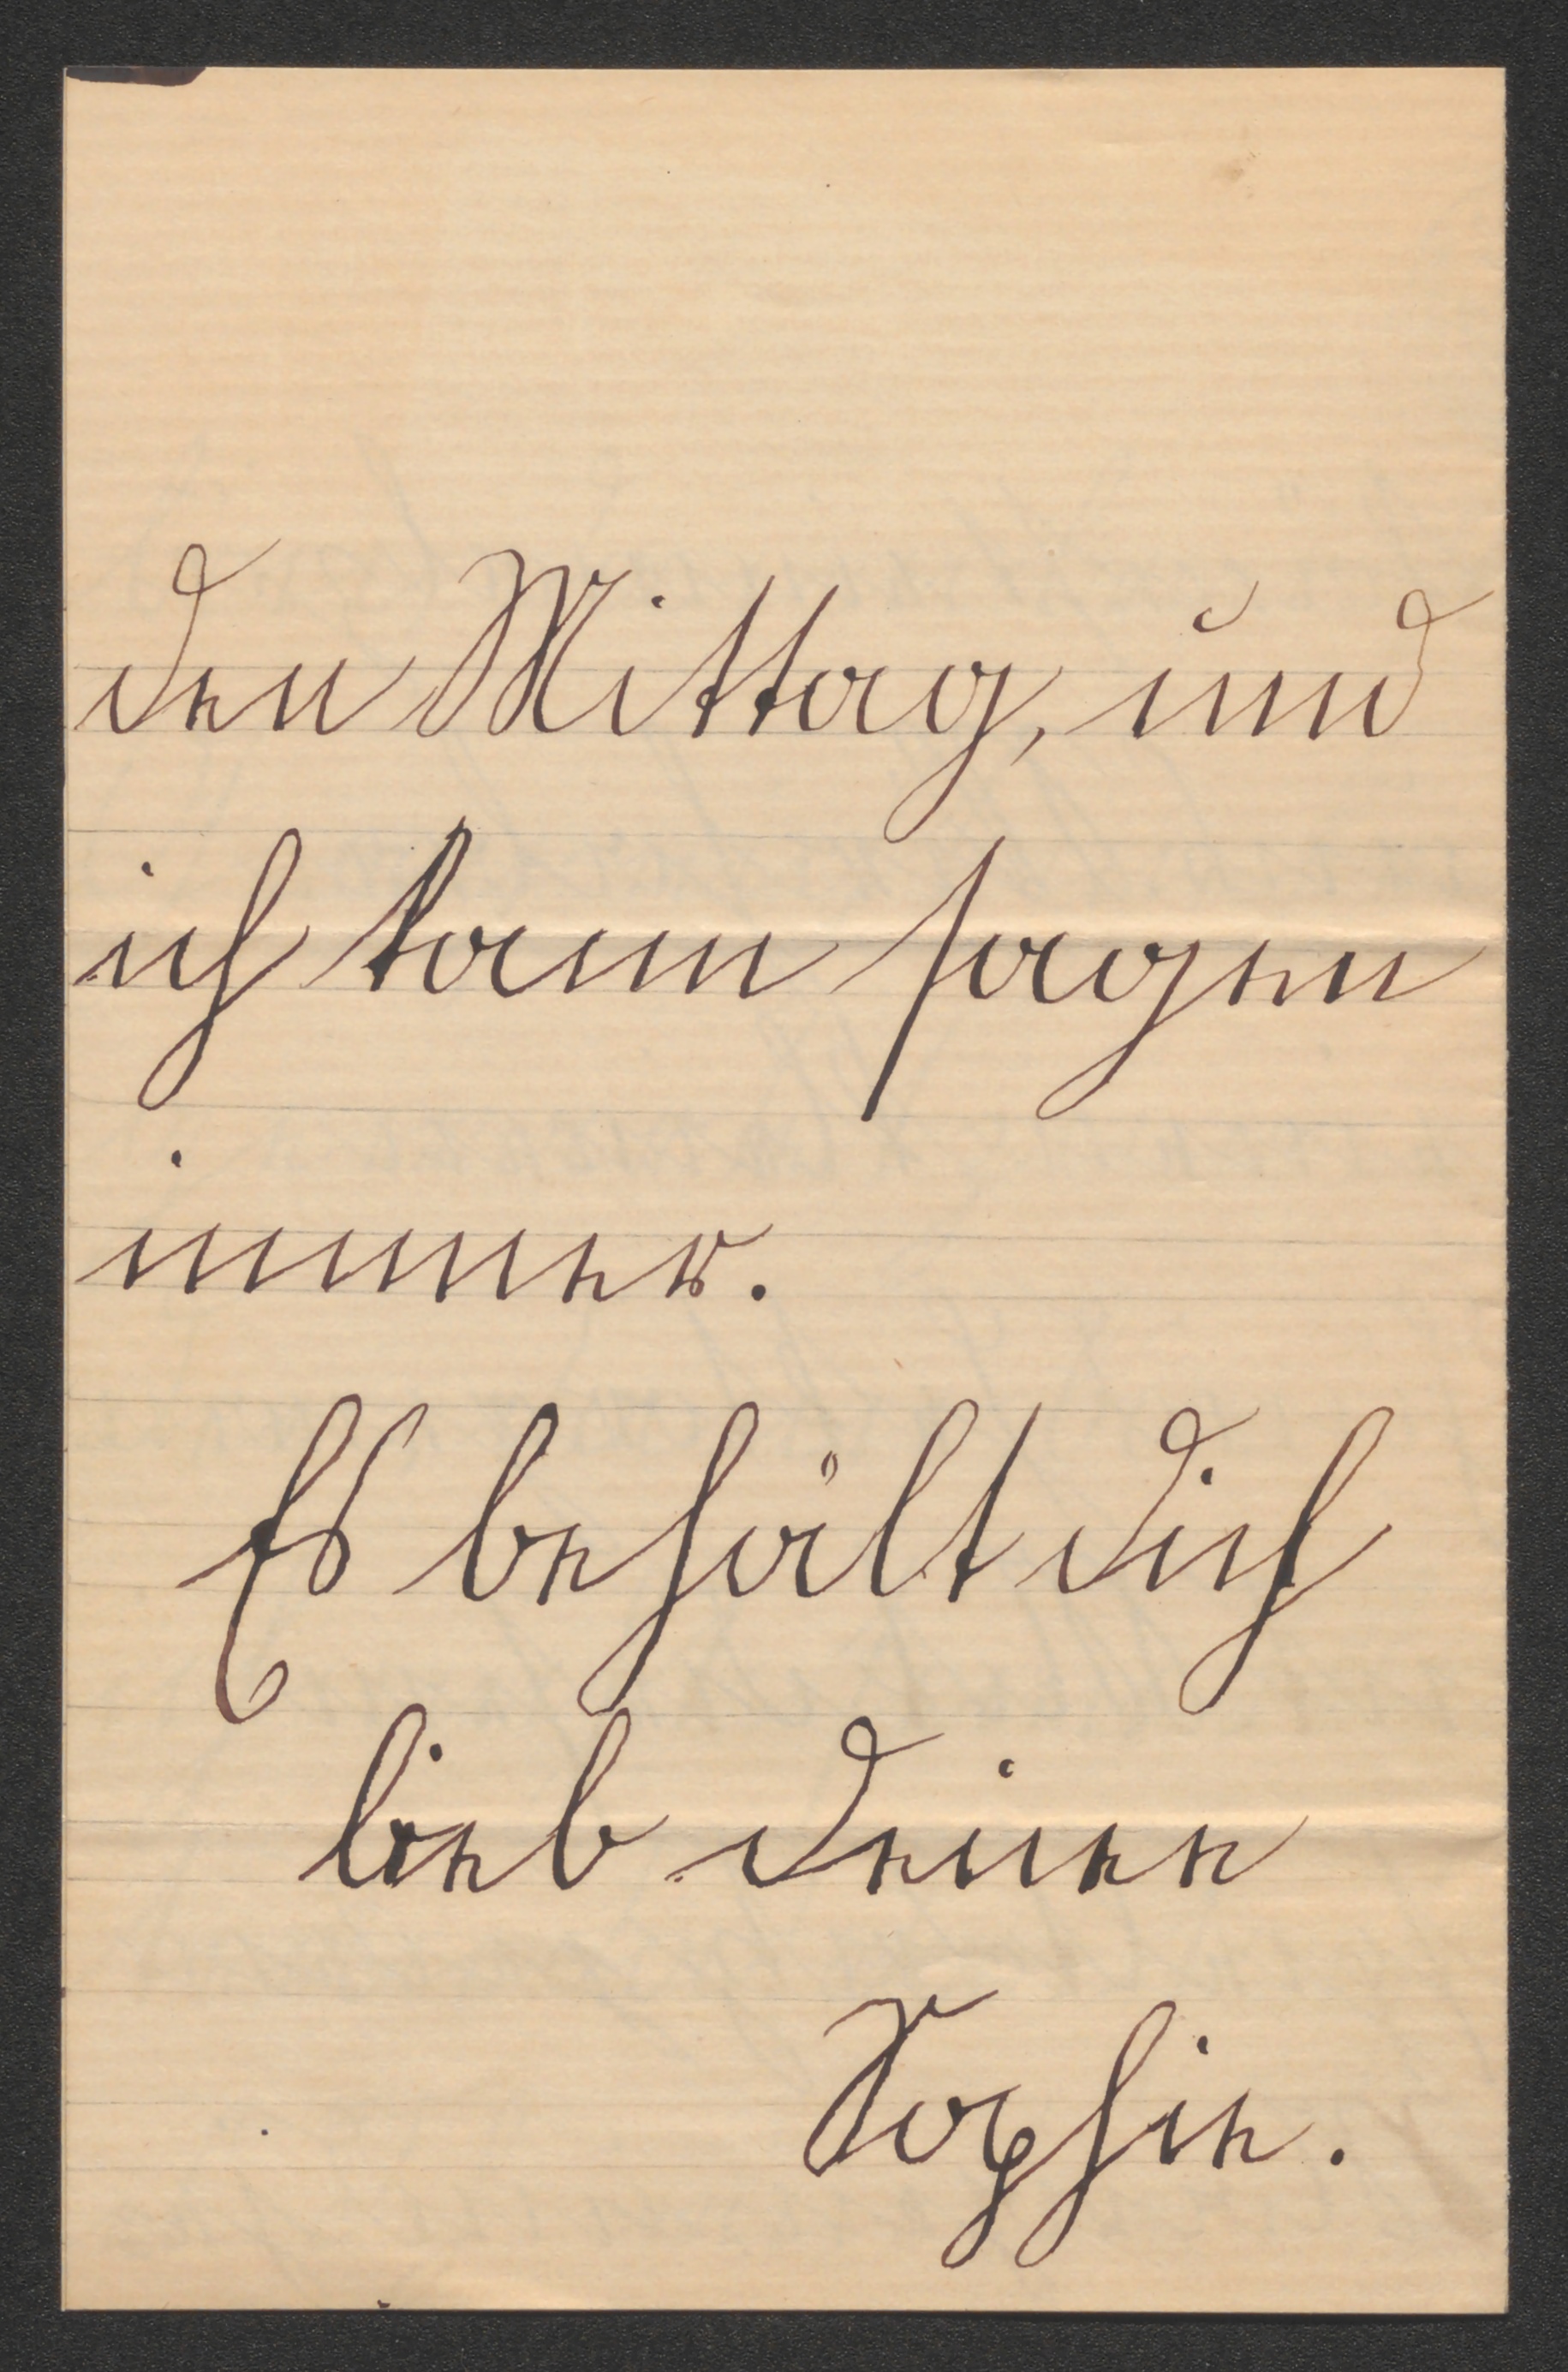 den Mittag, und
ich kann sagen
immer.
Es behält dich
lieb deine
Sophie.